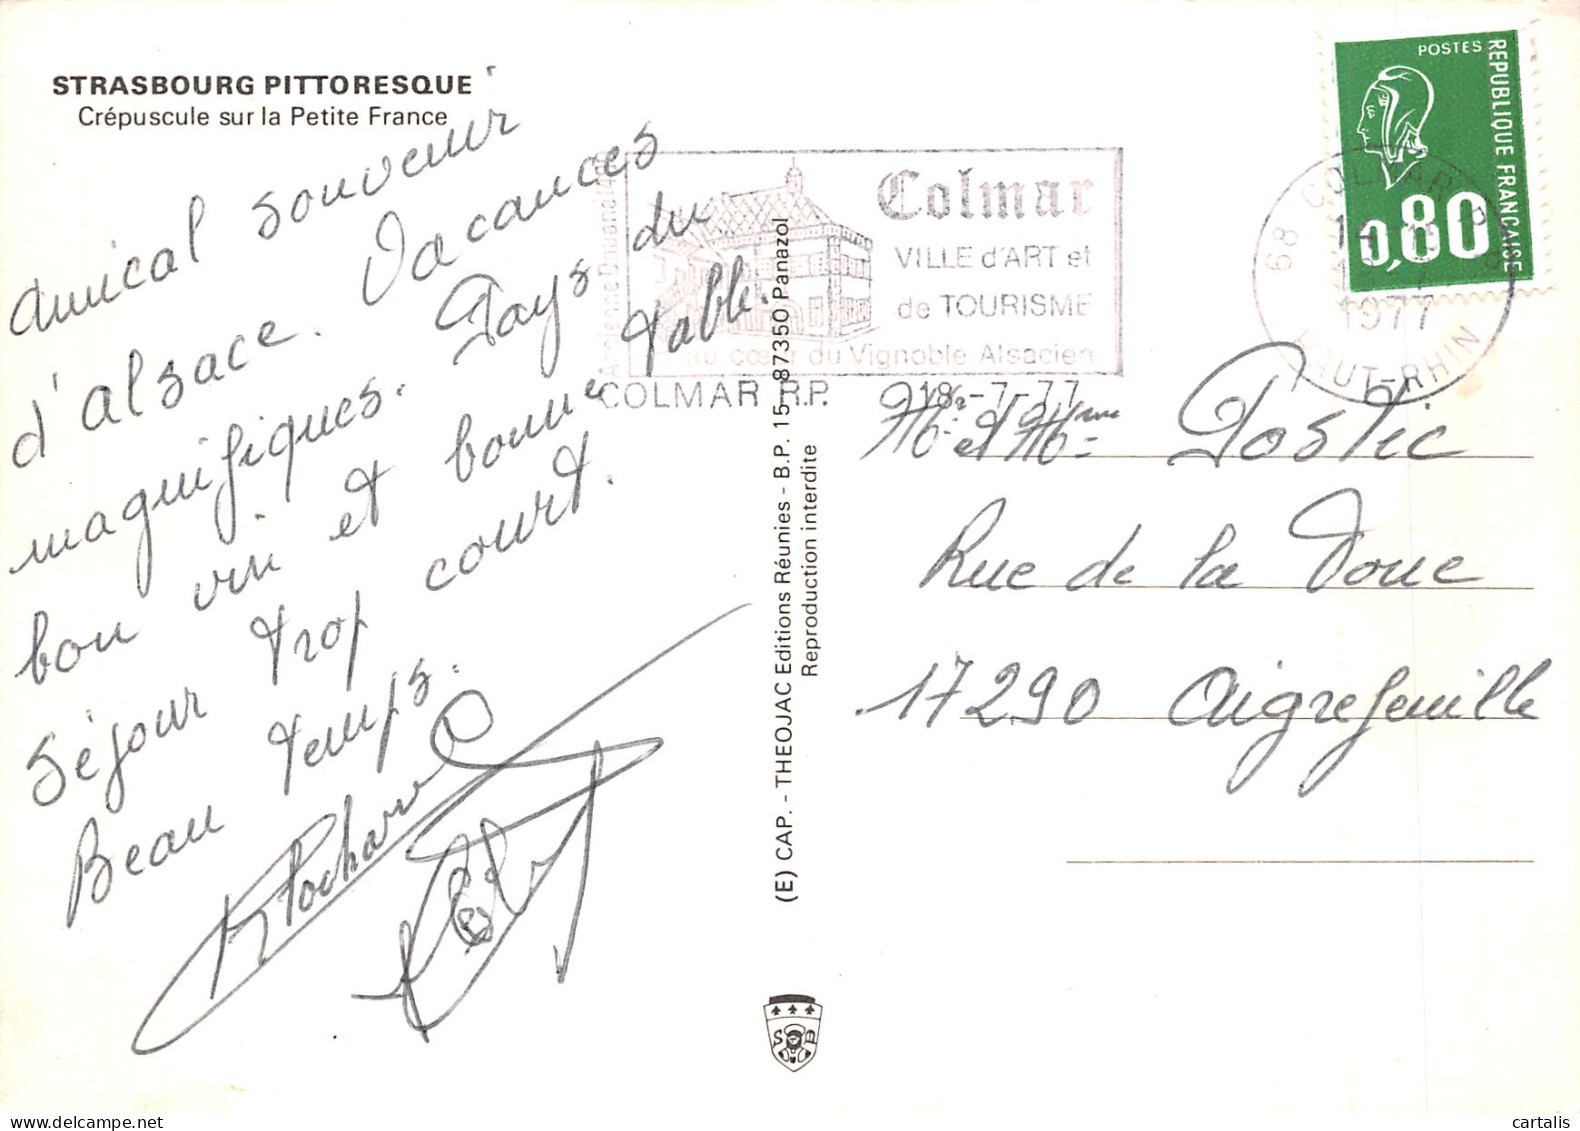 STRASBOURG PITTORESQUE
Crépuscule sur la Petite France
Amical souvenir
d'alsace. Vacances
magnifiques. Pays du
bon vin et bonne table.
Séjour trop court.
Beau temps.
Ancienne Douane
Colmar
VILLE d'ART et
de TOURISME
au cœur du Vignoble Alsacien
COLMAR R.P. 18-7-77
POSTES
REPUBLIQUE FRANÇAISE
0,80
68 COLMAR R.P.
1977
HAUT-RHIN
(E) CAP. - THEOJAC Editions Réunies - B.P. 15 - 87350 Panazol
Reproduction interdite
Mr et Mme Postic
Rue de la Doue
17290 Aigrefeuille
cartalis